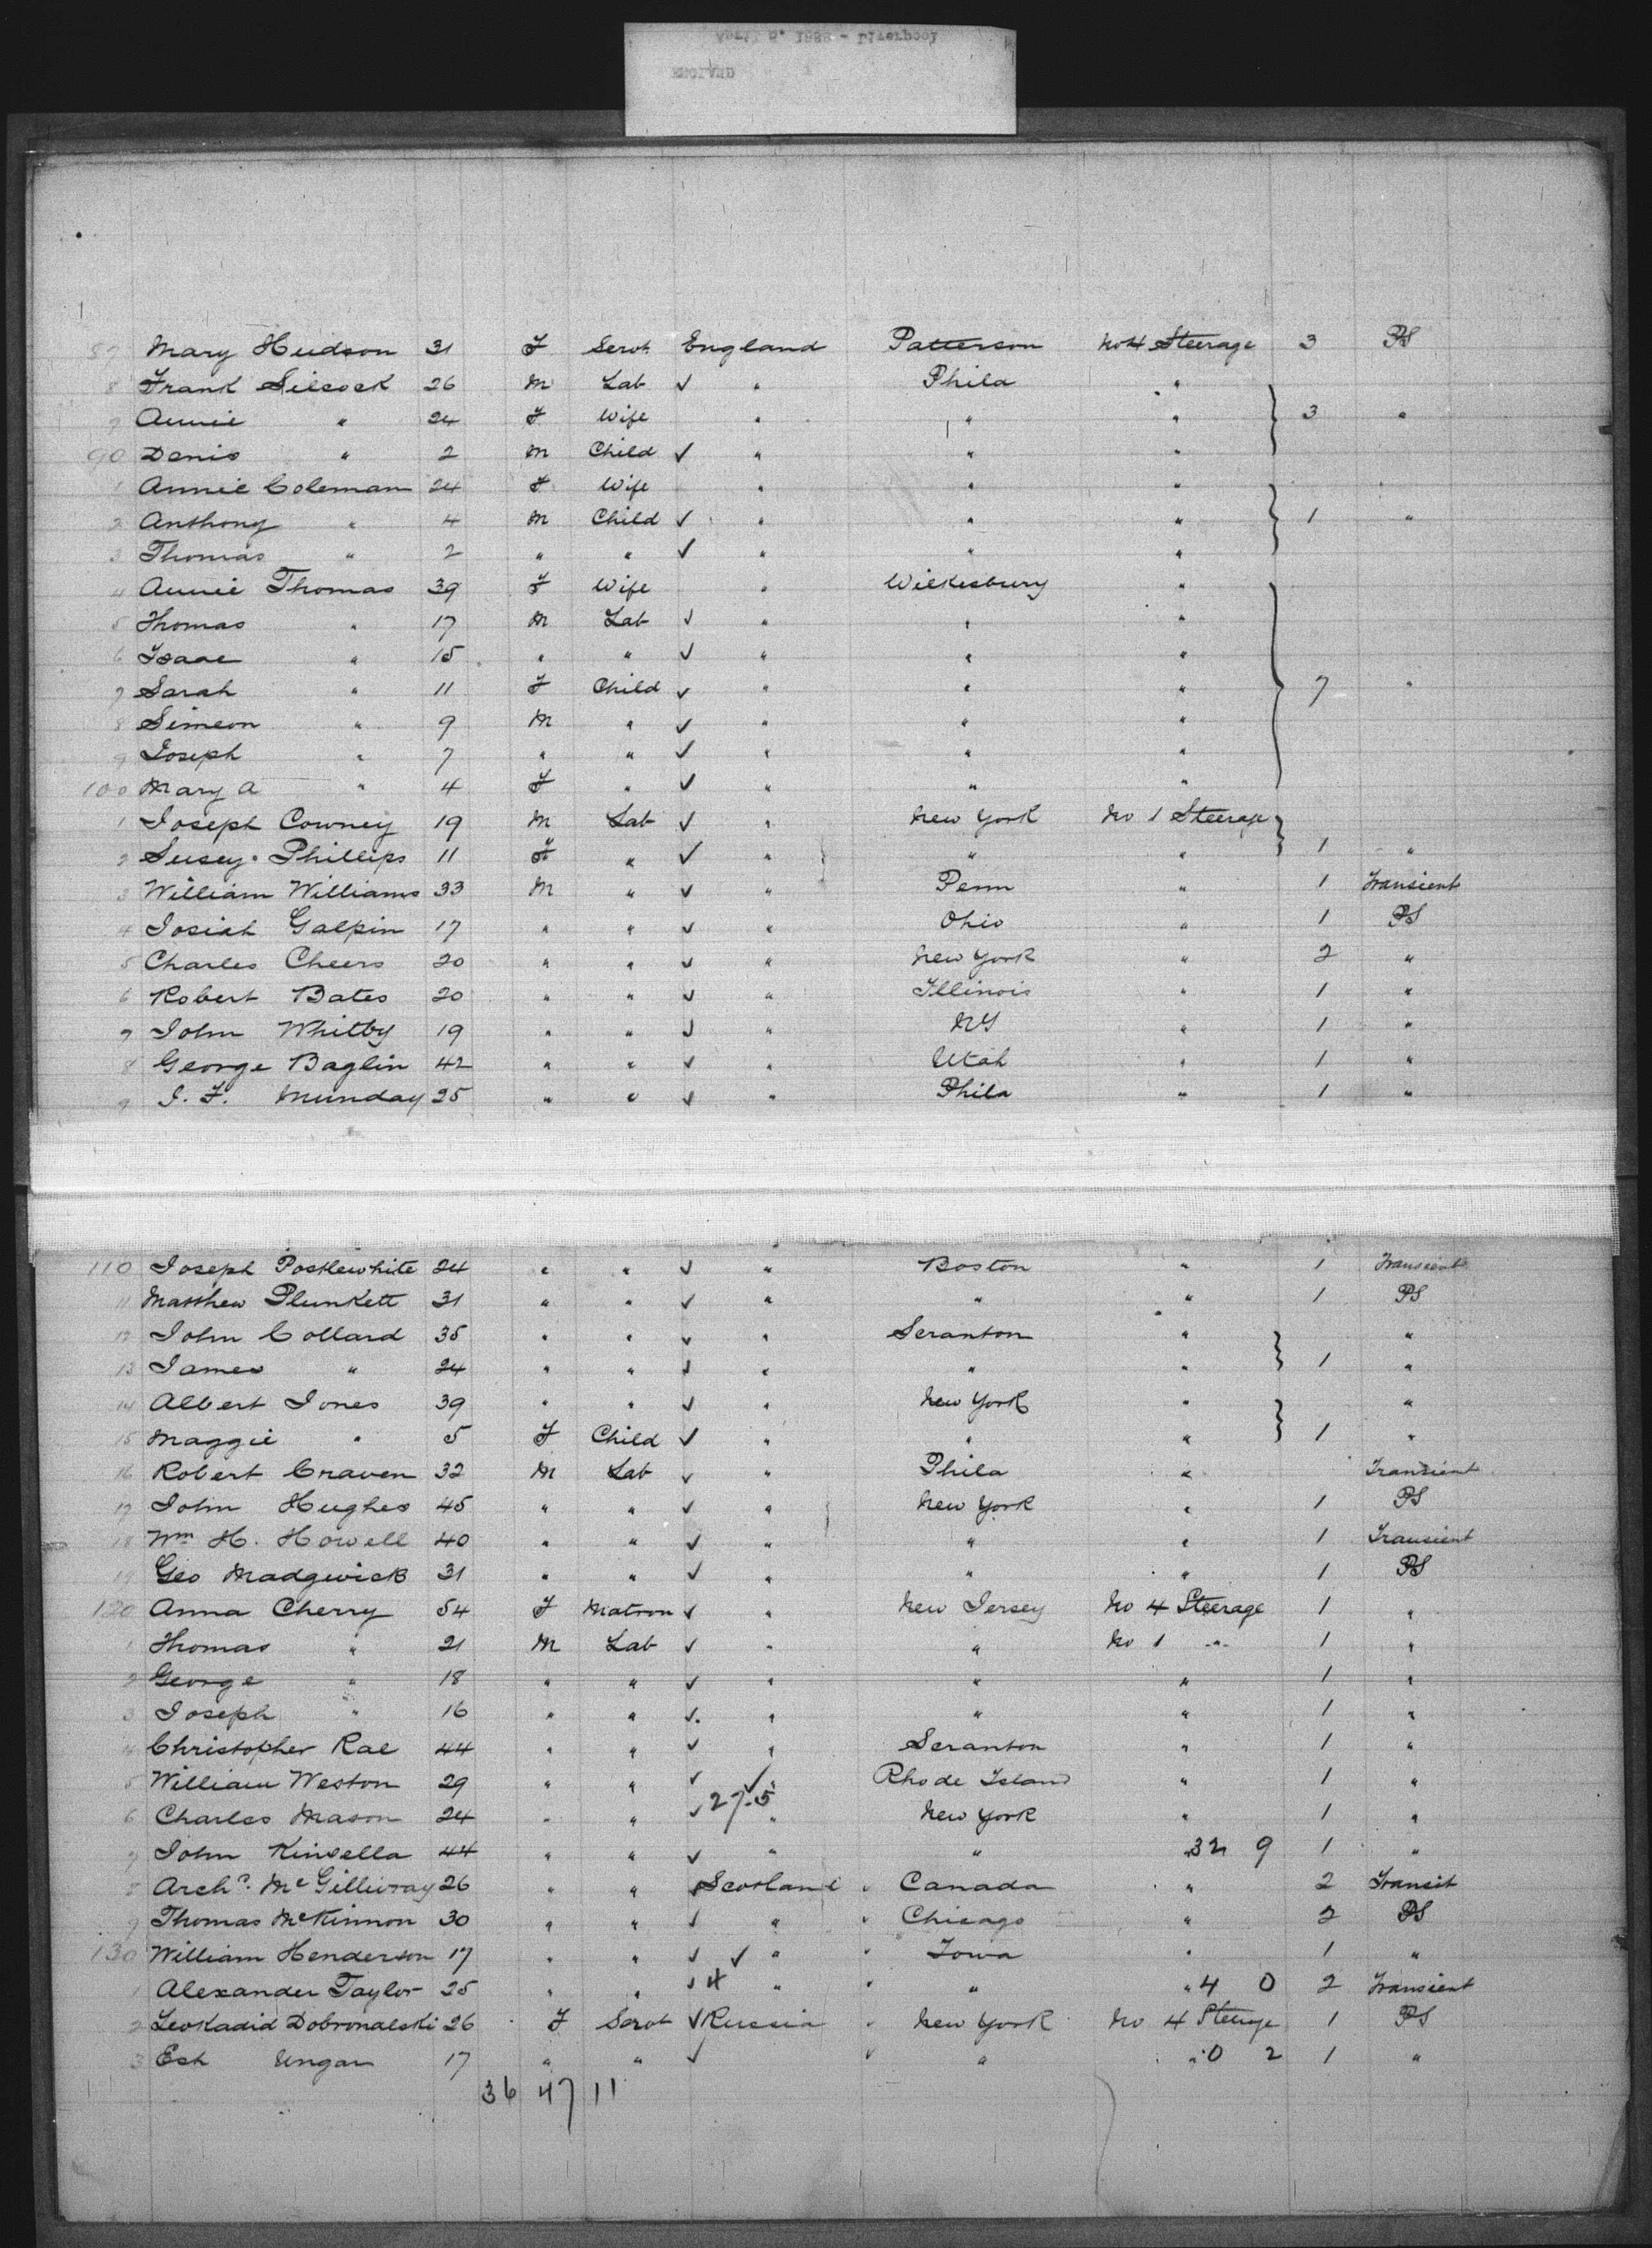 87 Mary Hudson 31 F Servt England Patterson No 4 Steerage 3 PS
8 Frank Silcock 26 M Lab ✓ " Phila " 
9 Annie " 24 F Wife " " " 3 "
90 Denis " 2 M Child ✓ " " "
1 Annie Coleman 24 F Wife " " "
2 Anthony " 4 M Child ✓ " " " 1 "
3 Thomas " 2 " " ✓ " " "
4 Annie Thomas 39 F Wife " Wilkesbury "
5 Thomas " 17 M Lab ✓ " " "
6 Isaac " 15 " " ✓ " " "
7 Sarah " 11 F Child ✓ " " " 7 "
8 Simeon " 9 M " ✓ " " "
9 Joseph " 7 " " ✓ " " "
100 Mary A " 4 F " ✓ " " "
1 Joseph Cowney 19 M Lab ✓ " New York No 1 Steerage
2 Susey Phillips 11 F " ✓ " " " 1 "
3 William Williams 33 M " ✓ " Penn " 1 Transient
4 Josiah Galpin 17 " " ✓ " Ohio " 1 PS
5 Charles Cheers 20 " " ✓ " New York " 2 "
6 Robert Bates 20 " " ✓ " Illinois " 1 "
7 John Whitby 19 " " ✓ " NY " 1 "
8 George Baglin 42 " " ✓ " Utah " 1 "
9 J. F. Munday 25 " " ✓ " Phila " 1 "
110 Joseph Postlewhite 24 " " ✓ " Boston " 1 Transient
11 Matthew Plunkett 31 " " ✓ " " " 1 PS
12 John Collard 35 " " ✓ " Scranton " "
13 James " 24 " " ✓ " " " 1 "
14 Albert Jones 39 " " ✓ " New York " "
15 Maggie " 5 F Child ✓ " " " 1 "
16 Robert Craven 32 M Lab ✓ " Phila " Transient
17 John Hughes 45 " " ✓ " New York " 1 PS
18 Wm H. Howell 40 " " ✓ " " " 1 Transient
19 Geo Madgwick 31 " " ✓ " " " 1 PS
120 Anna Cherry 54 F Matron ✓ " New Jersey No 4 Steerage 1 "
1 Thomas " 21 M Lab ✓ " " No 1 " 1 "
2 George " 18 " " ✓ " " " 1 "
3 Joseph " 16 " " ✓ " " " 1 "
4 Christopher Rae 44 " " ✓ " Scranton " 1 "
5 William Weston 29 " " ✓ ✓ " Rhode Island " 1 "
6 Charles Mason 24 " " ✓ 27-5 " New York " 1 "
7 John Kinsella 44 " " ✓ " " " 32 9 1 "
8 Archd. McGillivray 26 " " ✓ Scotland " Canada " 2 Transit
9 Thomas McKinnon 30 " " ✓ " " Chicago " 2 PS
130 William Henderson 17 " " ✓ ✓ " " Iowa " 1 "
1 Alexander Taylor 25 " " ✓ 4 " " " " 4 0 2 Transient
2 Leokadid Dobronalski 26 F Servt ✓ Russia " New York No 4 Steerage 1 PS
3 Esh Ungar 17 " " ✓ " " " 0 2 1 "
36 47 11